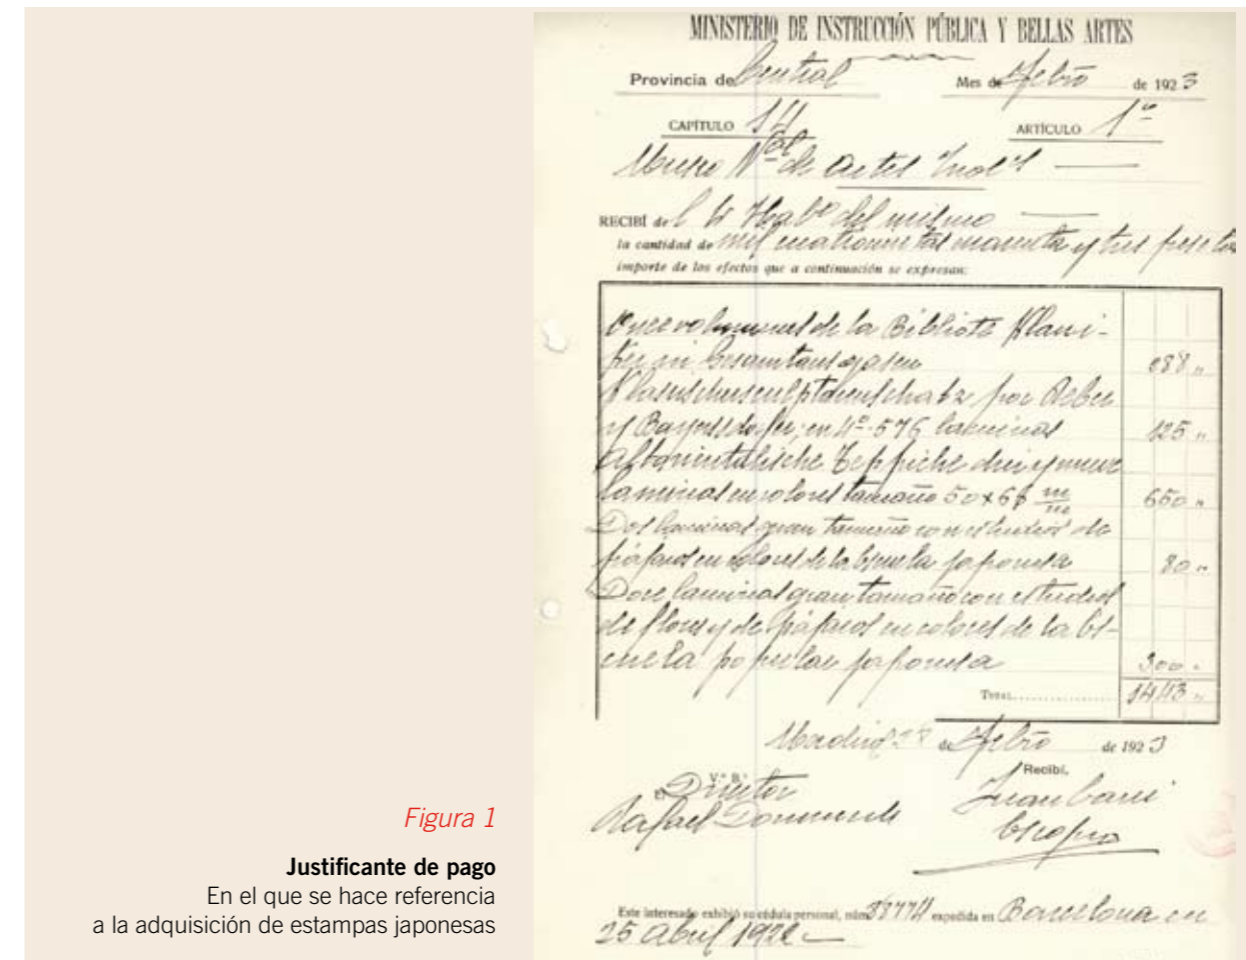 MINISTERIO DE INSTRUCCIÓN PÚBLICA Y BELLAS ARTES
Provincia de Central Mes de Febro de 1923
CAPÍTULO 14 ARTÍCULO 1º
Museo Nal de Artes Indls
RECIBÍ del Sr Habdo del mismo
la cantidad de mil cuatrocientas cuarenta y tres pesetas
importe de los efectos que a continuación se expresan:
Once volumenes de la Bibliote Klassi-
ker in Gesamtausgaben 288 "
Klassischersculpturenschatz por Reber
y Bayersdorfer, en 4º 576 laminas 125 "
Altorientalische Teppiche diez y nueve
laminas en colores tamaño 50x66 650 "
Dos laminas gran tamaño con estudios de
pájaros en colores de la Escuela japonesa 80 "
Doce laminas gran tamaño con estudios
de flores y de pájaros en colores de la Es-
cuela popular japonesa 300 "
TOTAL 1443 "
Madrid de Febro de 1923
Vº Bº Recibí,
El Director
Rafael Domenech Juan
Este interesado exhibió su cédula personal, núm. 38774 expedida en Barcelona en
25 Abril 1922
Figura 1
Justificante de pago
En el que se hace referencia
a la adquisición de estampas japonesas